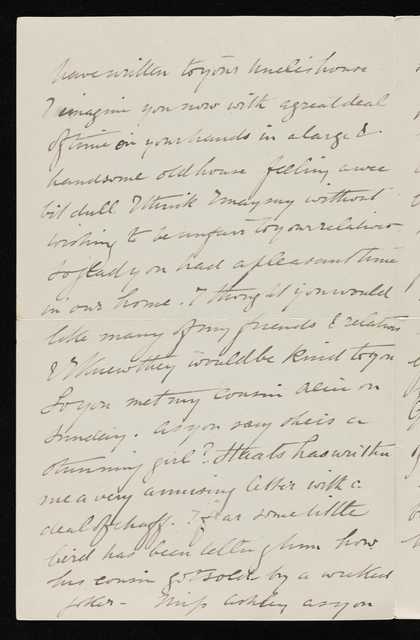 have written to your uncle's house
I imagine you now with a great deal
of time on your hands in a large &
handsome old house feeling a wee
bit dull I think I may say without
wishing to be unfair to your relations
So glad you had a pleasant time
in our home. I thought you would
like many of my friends & relations
& I knew they would be kind to you
So you met my cousin on
Sunday. As you say she is a
stunning girl? has written
me a very amusing letter with a
deal of chaff. I fear some little
bird has been telling him how
his cousin got sold by a wicked
joker - Miss Ashley as you